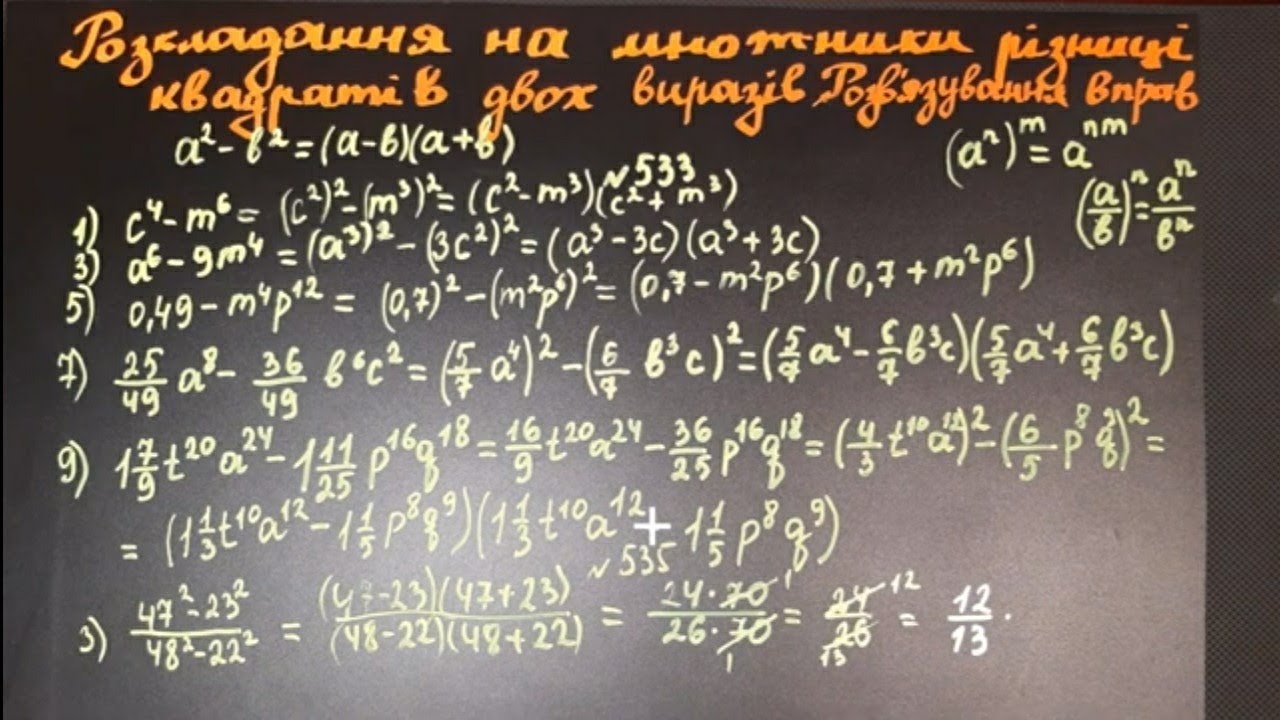 Розкладання на множники різниці
квадратів двох виразів. Розв'язування вправ
a² - b² = (a-b)(a+b)
(aⁿ)ᵐ = aⁿᵐ
(a/b)ⁿ = aⁿ/bⁿ
№533
1) c⁴ - m⁶ = (c²)² - (m³)² = (c² - m³)(c² + m³)
3) a⁶ - 9m⁴ = (a³)² - (3c²)² = (a³ - 3c)(a³ + 3c)
5) 0,49 - m⁴p¹² = (0,7)² - (m²p⁶)² = (0,7 - m²p⁶)(0,7 + m²p⁶)
7) 25/49 a⁸ - 36/49 b⁶c² = (5/7 a⁴)² - (6/7 b³c)² = (5/7 a⁴ - 6/7 b³c)(5/7 a⁴ + 6/7 b³c)
9) 1 7/9 t²⁰a²⁴ - 1 11/25 p¹⁶q¹⁸ = 16/9 t²⁰a²⁴ - 36/25 p¹⁶q¹⁸ = (4/3 t¹⁰a¹²)² - (6/5 p⁸q⁹)² =
= (1 1/3 t¹⁰a¹² - 1 1/5 p⁸q⁹)(1 1/3 t¹⁰a¹² + 1 1/5 p⁸q⁹)
№535
3) (47² - 23²)/(48² - 22²) = ((47-23)(47+23))/((48-22)(48+22)) = (24·70 1)/(26·70 1) = (24 12)/(26 13) = 12/13.